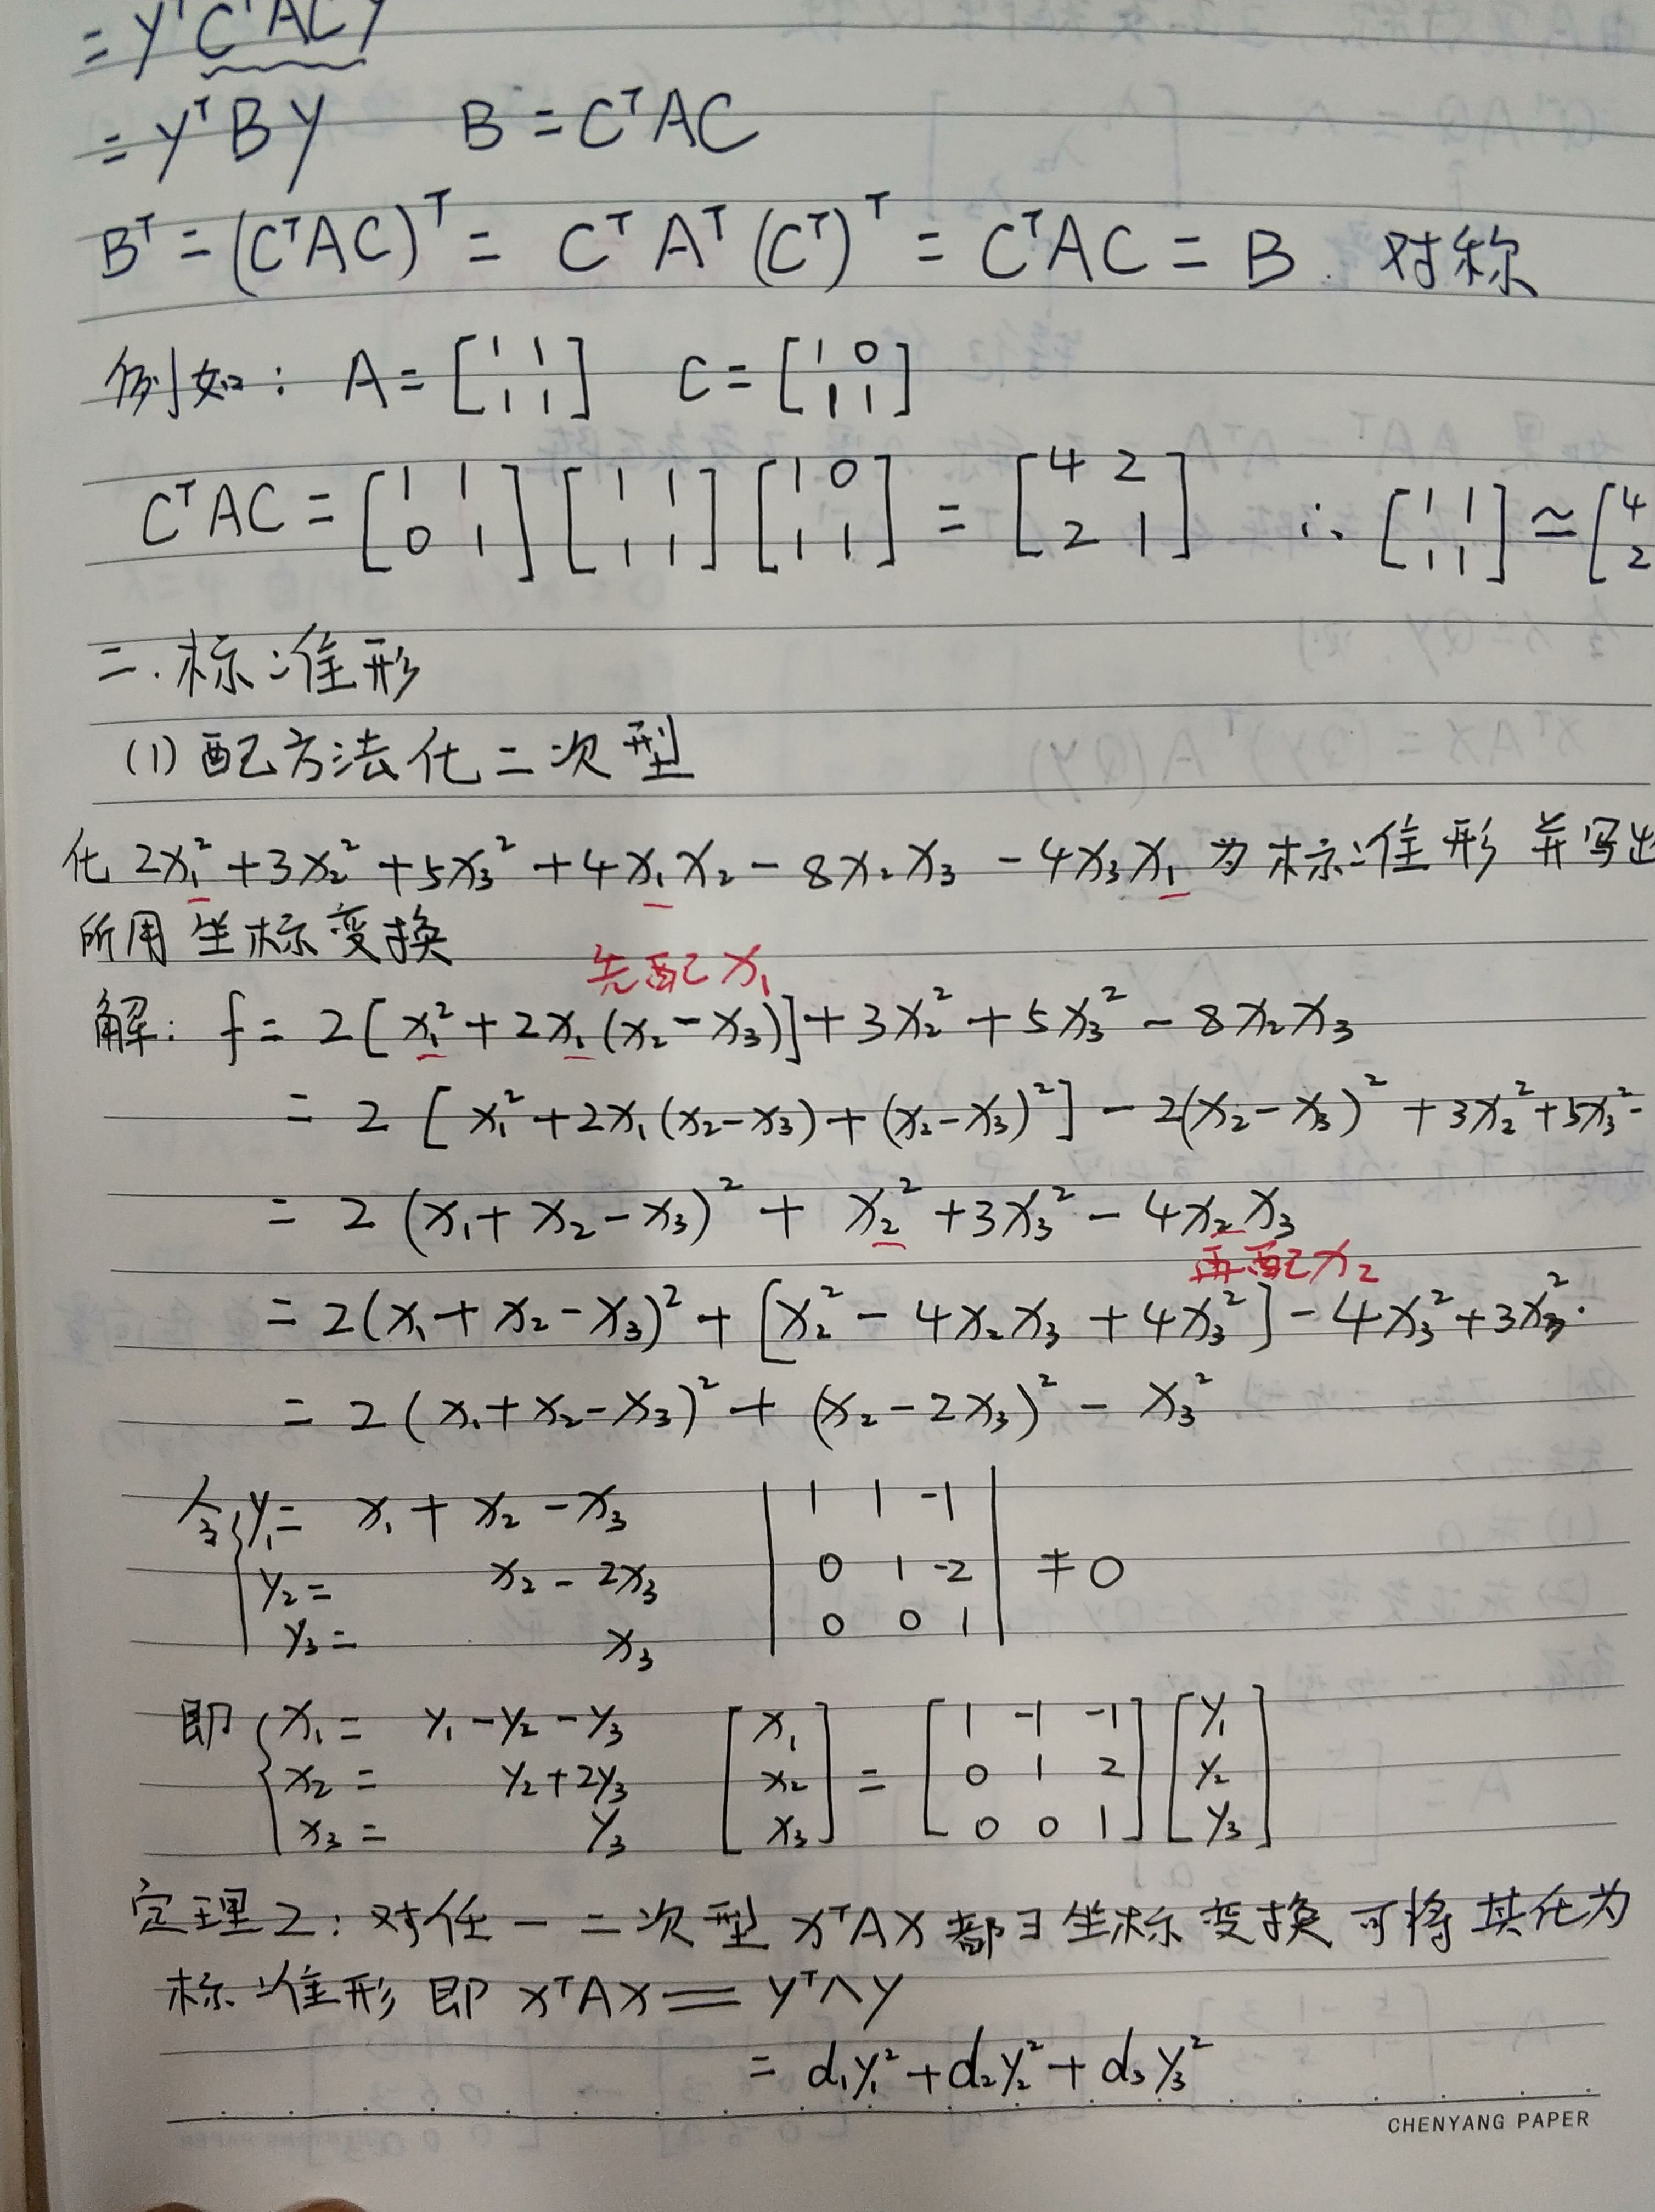 = yᵀCᵀACy
= yᵀBy B = CᵀAC
Bᵀ = (CᵀAC)ᵀ = CᵀAᵀ(Cᵀ)ᵀ = CᵀAC = B. 对称
例如: A = [1 1; 1 1] C = [1 0; 1 1]
CᵀAC = [1 1; 0 1] [1 1; 1 1] [1 0; 1 1] = [4 2; 2 1] ∴ [1 1; 1 1] ≃ [4; 2
二.标准形
(1) 配方法化二次型
化 2x₁² + 3x₂² + 5x₃² + 4x₁x₂ - 8x₂x₃ - 4x₃x₁ 为标准形 并写出
所用坐标变换
先配x₁
解: f = 2[x₁² + 2x₁(x₂-x₃)] + 3x₂² + 5x₃² - 8x₂x₃
= 2[x₁² + 2x₁(x₂-x₃) + (x₂-x₃)²] - 2(x₂-x₃)² + 3x₂² + 5x₃² -
= 2(x₁+x₂-x₃)² + x₂² + 3x₃² - 4x₂x₃
再配x₂
= 2(x₁+x₂-x₃)² + [x₂² - 4x₂x₃ + 4x₃²] - 4x₃² + 3x₃².
= 2(x₁+x₂-x₃)² + (x₂-2x₃)² - x₃²
令{ y₁ = x₁ + x₂ - x₃ | 1 1 -1 |
y₂ = x₂ - 2x₃ | 0 1 -2 | ≠ 0
y₃ = x₃ | 0 0 1 |
即{ x₁ = y₁ - y₂ - y₃ [x₁ [1 -1 -1] [y₁
x₂ = y₂ + 2y₃ x₂ = 0 1 2 y₂
x₃ = y₃ x₃] [0 0 1] y₃]
定理2: 对任一二次型 xᵀAx 都∃坐标变换可将其化为
标准形 即 xᵀAx == yᵀ∧y
= d₁y₁² + d₂y₂² + d₃y₃²
CHENYANG PAPER